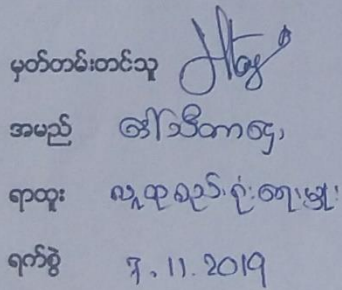 မှတ်တမ်းတင်သူ
အမည် ဒေါ်သီတာဌေး
ရာထူး လူထုစည်းရုံးရေးမှူး
ရက်စွဲ 7.11.2019